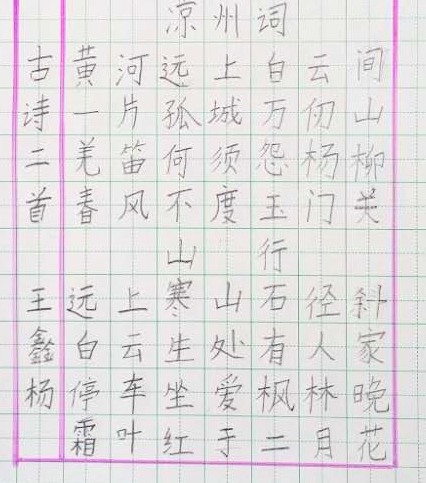 古诗二首
王鑫杨
凉州词
黄河远上白云间
一片孤城万仞山
羌笛何须怨杨柳
春风不度玉门关
山行
远上寒山石径斜
白云生处有人家
停车坐爱枫林晚
霜叶红于二月花